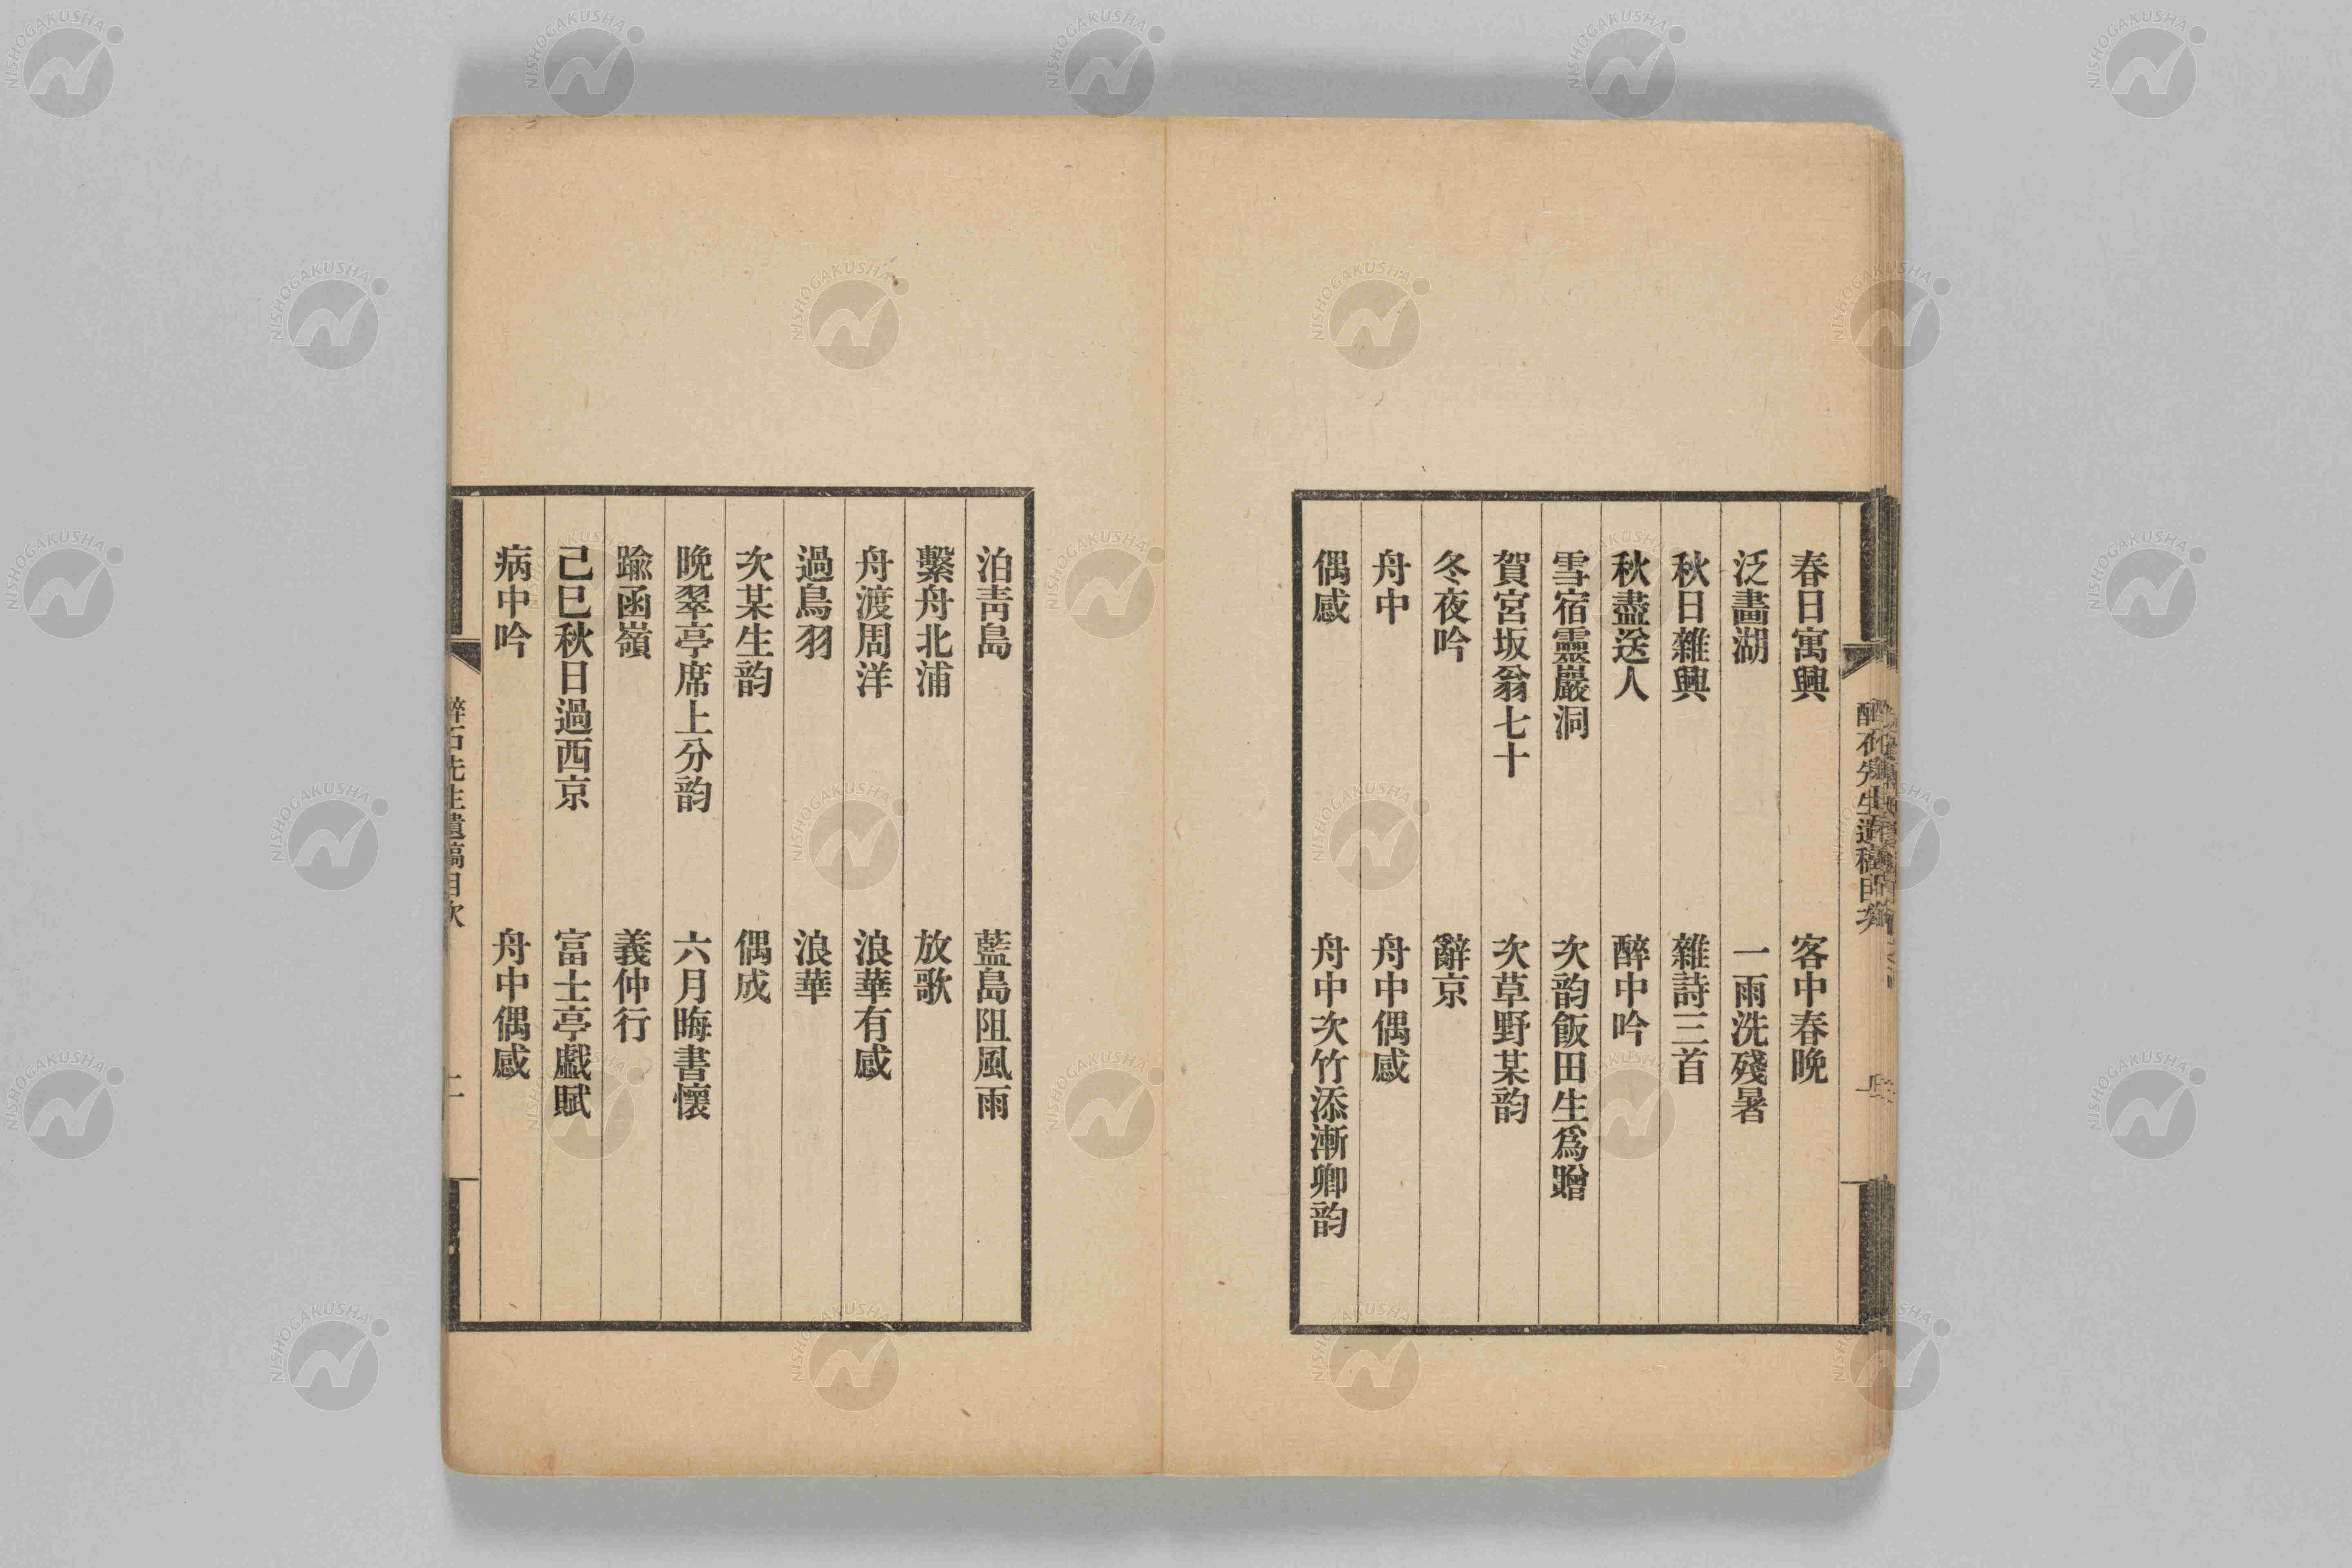 春日寓興　客中春晚
泛畵湖　一雨洗殘暑
秋日雜興　雜詩三首
秋盡送人　醉中吟
雪宿靈巖洞　次韵飯田生爲贈
賀宮坂翁七十　次草野某韵
冬夜吟　辭京
舟中　舟中偶感
偶感　舟中次竹添漸卿韵
泊靑島　藍島阻風雨
繫舟北浦　放歌
舟渡周洋　浪華有感
過鳥羽　浪華
次某生韵　偶成
晩翠亭席上分韵　六月晦書懷
踰函嶺　義仲行
己巳秋日過西京　富士亭戱賦
病中吟　舟中偶感
醉石先生遺稿目次　二
NISHOGAKUSHA